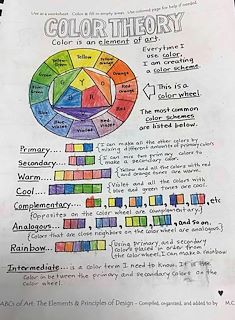 Use as a worksheet. Color & fill in empty areas. Use colored page for help if needed.
COLOR THEORY
Color is an element of art.
Everytime I
use color,
I am creating
a color scheme.
Yellow
Yellow Orange
Orange
Red Orange
Red
Red Violet
Violet
Blue Violet
Blue
Green
Yellow Green
This is a
color wheel.
The most common
color schemes
are listed below.
Primary
I can make all the other colors by
mixing different amounts of primary colors
Secondary
I can mix two primary colors to
make a secondary color.
Warm
Yellow and all the colors with red
and orange tones are warm.
Cool
Violet and all the colors with
blue and green tones are cool.
Complementary
, etc
(Opposites on the color wheel are complementary)
Analogous
, and so on.
(Colors that are close neighbors on the color wheel are analogous.)
Rainbow
Using primary and secondary
colors placed in order from
the color wheel, I can make a rainbow
Intermediate... is a color term I need to know. It is the
color in between the primary and secondary colors on the
color wheel.
ABCs of Art: The Elements & Principles of Design - Compiled, organized, and added to by M.C.